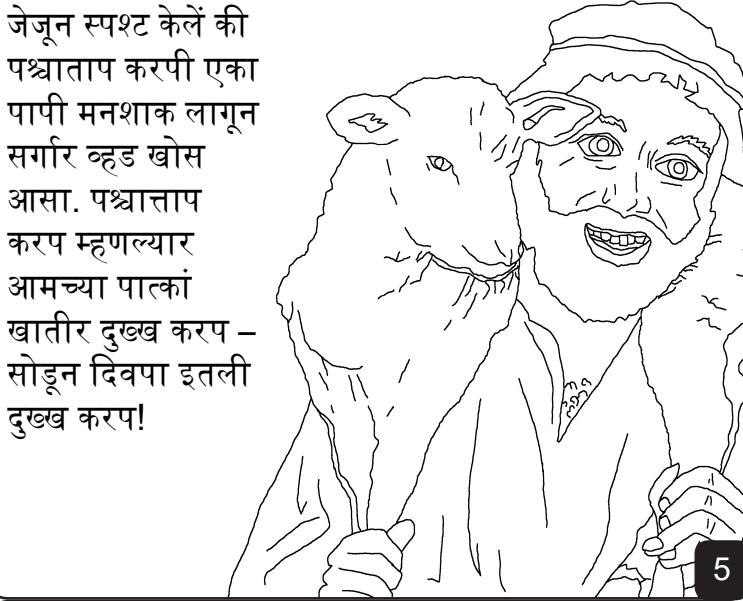 जेजून स्पश्ट केलें की
पश्चाताप करपी एका
पापी मनशाक लागून
सर्गार व्हड खोस
आसा. पश्चात्ताप
करप म्हणल्यार
आमच्या पात्कां
खातीर दुख्ख करप –
सोडून दिवपा इतली
दुख्ख करप!
5